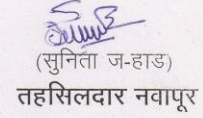 (सुनिता ज-हाड)
तहसिलदार नवापूर